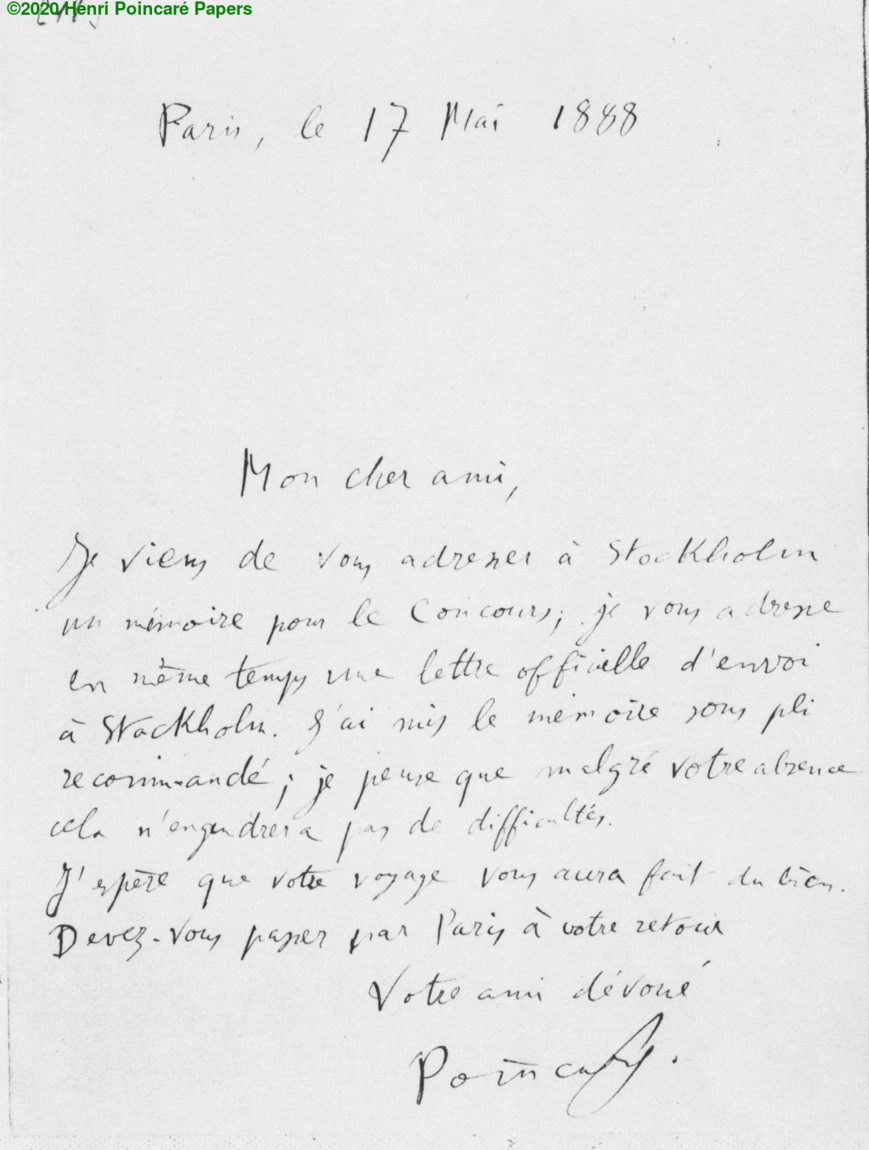 ©2020 Henri Poincaré Papers
Paris, le 17 Mai 1888
Mon cher ami,
Je viens de vous adresser à Stockholm
un mémoire pour le Concours; je vous adresse
en même temps une lettre officielle d'envoi
à Stockholm. J'ai mis le mémoire sous pli
recommandé; je pense que malgré votre absence
cela n'engendrera pas de difficultés.
J'espère que votre voyage vous aura fait du bien.
Devez-vous passer par Paris à votre retour
Votre ami dévoué
Poincaré